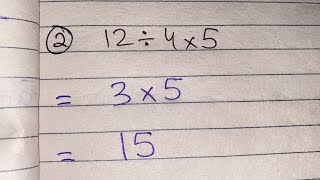 ② 12 ÷ 4 × 5
= 3 × 5
= 15